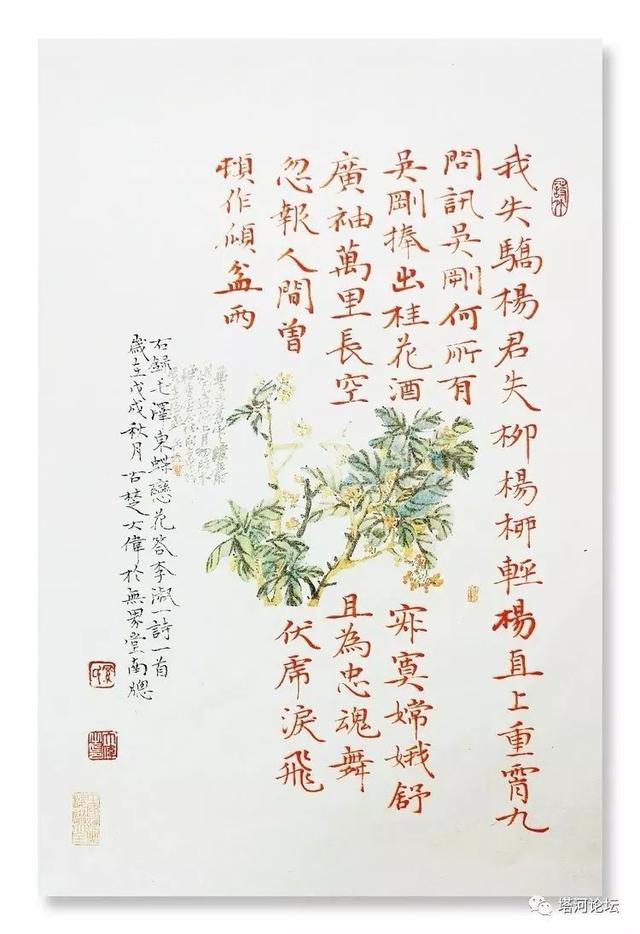 我失驕楊君失柳楊柳輕楊直上重霄九
問訊吳剛何所有
吳剛捧出桂花酒寂寞嫦娥舒
廣袖萬里長空且為忠魂舞
忽報人間曾伏虎淚飛
頓作傾盆雨
右錄毛澤東蝶戀花答李淑一詩一首
歲在戊戌秋月古楚大偉於無界堂南牕
塔河论坛